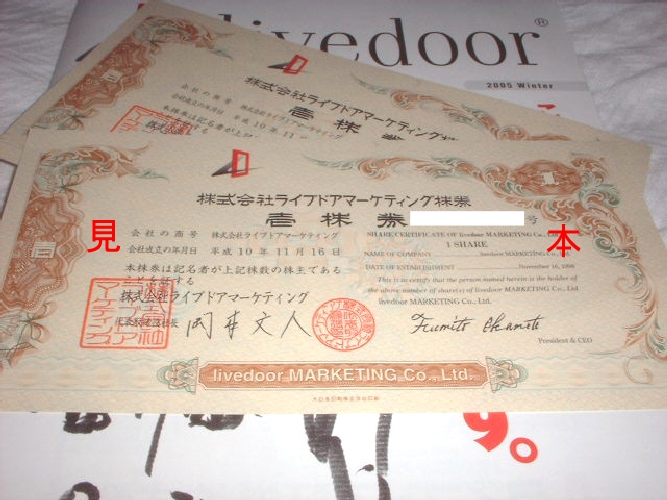 livedoor®
2005 Winter
株式会社ライブドアマーケティング株
壱株券
会社の商号 株式会社ライブドアマーケティング
会社成立の年月日 平成10年11月
本株券は記名者が上
株式会社ライブドアマーケティング株券
壱株券 号
見本
会社の商号 株式会社ライブドアマーケティング
会社成立の年月日 平成10年11月16日
本株券は記名者が上記株数の株主である
ことを証する
株式会社ライブドアマーケティング
代表取締役社長 岡本文人
SHARE CERTIFICATE OF livedoor MARKETING Co., Ltd.
1 SHARE
NAME OF COMPANY livedoor MARKETING Co., Ltd.
DATE OF ESTABLISHMENT November 16, 1998
This is to certify that the person named herein is the holder of
the above number of share(s) of livedoor MARKETING Co., Ltd.
livedoor MARKETING Co., Ltd.
Fumito Okamoto
President & CEO
livedoor MARKETING Co., Ltd.
す。